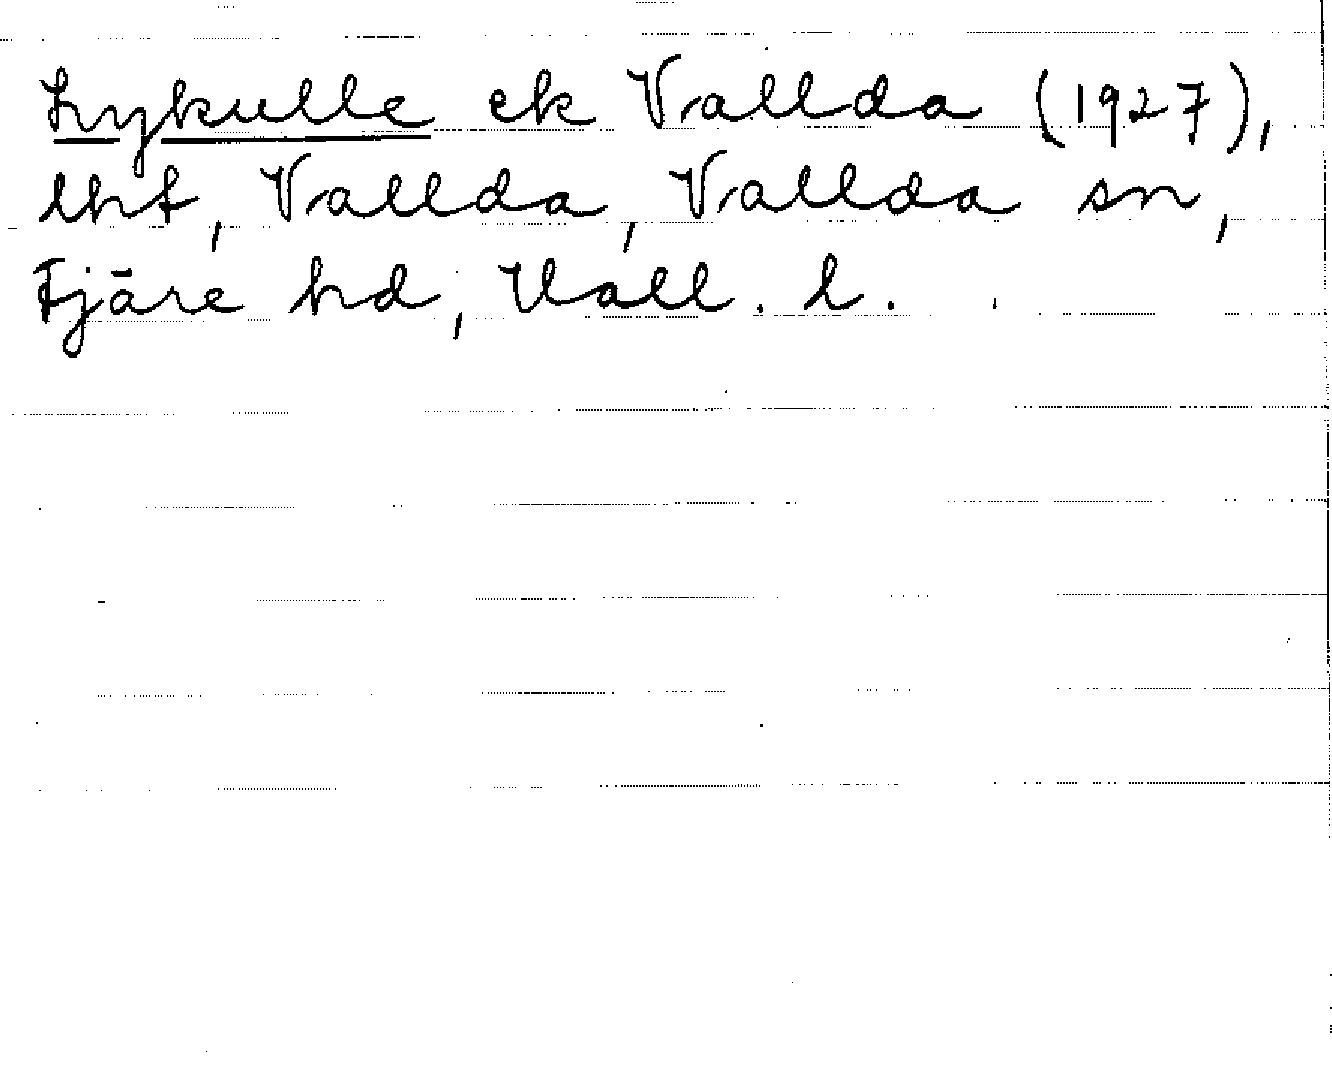 Lykulle ek Vallda (1927),
lht, Vallda, Vallda sn,
Fjäre hd, Hall. l.